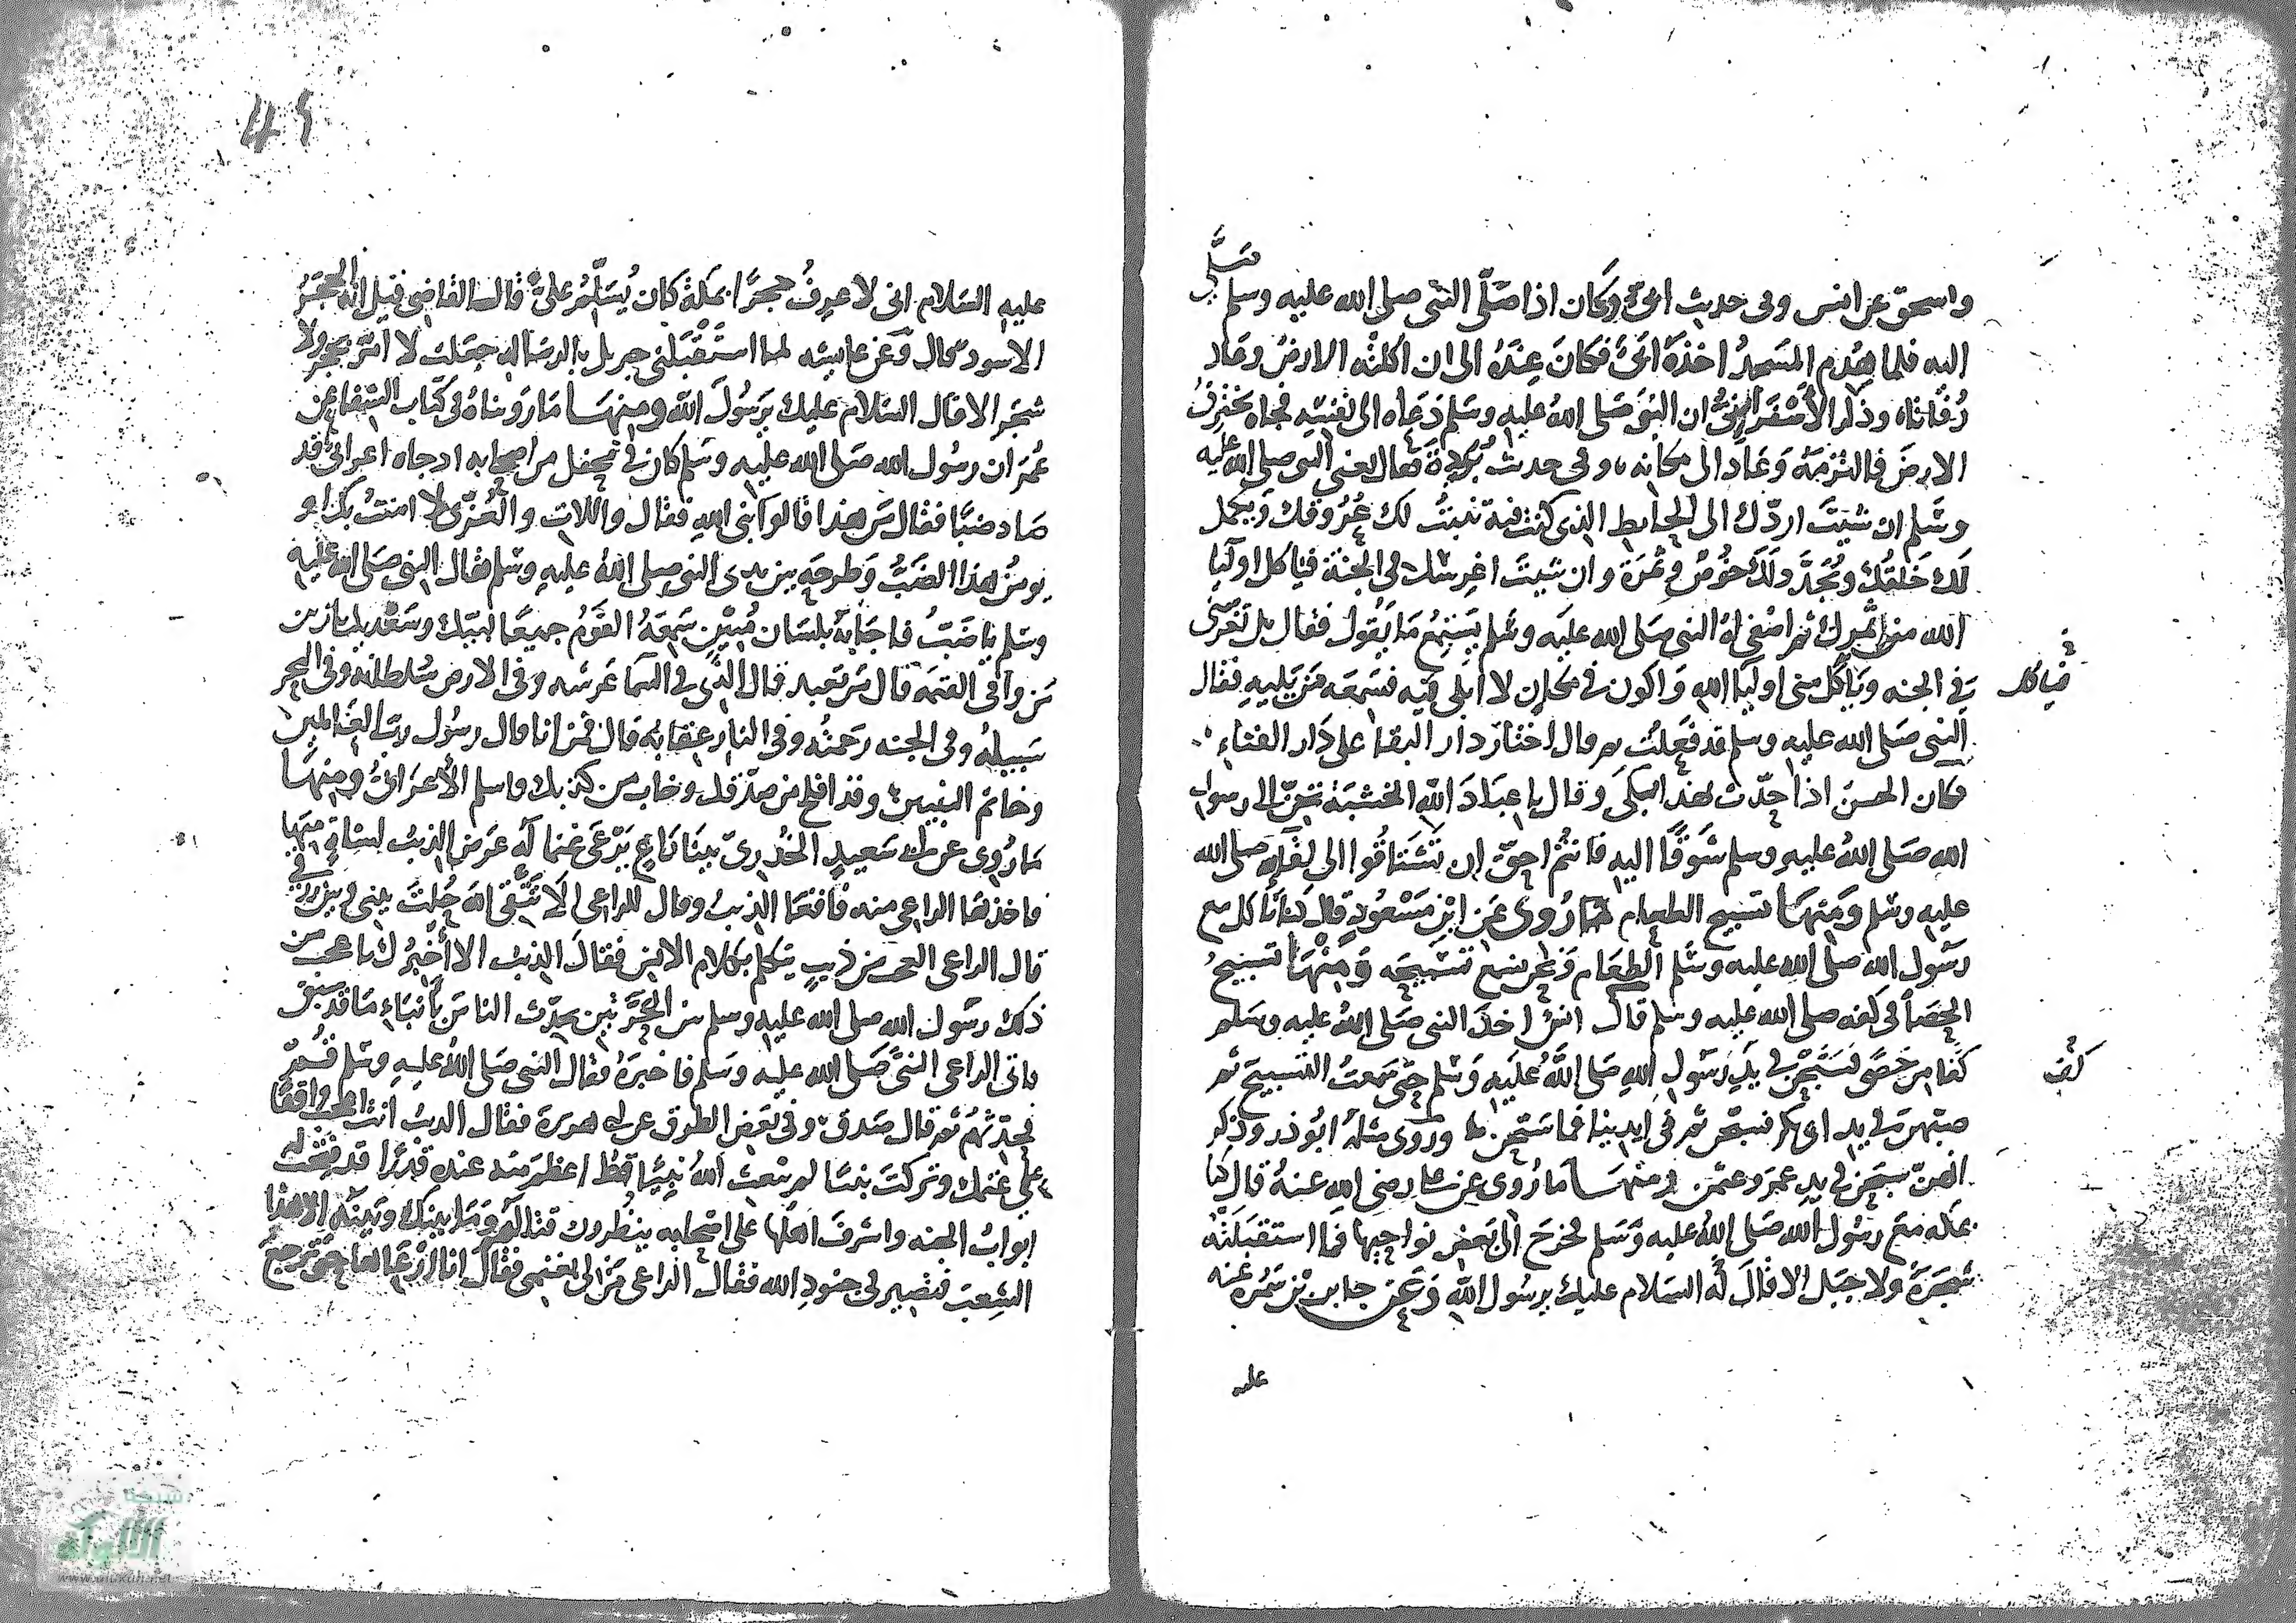 صلى
واسحق عن انس وفي حديث ابيّ وكان اذا صلّى النبي صلى الله عليه وسلم
اليه فلما هدم المسجد اخذهُ ابيّ فكانَ عندَهُ الى ان اكلتْه الارضُ وعاد
رُفاتا، وذكر الأسفرايني ان النبي صَلى اللهُ عليهِ وسلم دَعَاه الى نفسِه فجاه يخرق
الارضَ فالتزمَهُ وعاد الى مكانه، وفي حديث بُرَيدة فقال يعني النبي صلى الله عليه
وسَلم ان شيت اردّك الى الحايط الذي كنت فيه تنبتُ لك عروقك ويكمل
لك خلقك ويُجدّد لك خُوصٌ وثمرة وان شيتَ اغرسْك في الجنة فياكل اوليا
الله من ثمرك ثم اصغى له النبي صَلى الله عليه وسَلم يَسْتمِعُ مَا يَقُول فقال بل تغرسُني
في الجنه وياكل مني اوليا اللهِ واكون في مكان لا ابلى فيه فسَمعَه مَن يَليهِ فقال
فياكل
النبي صَلى الله عليه وسلم قد فعَلتُ ثم قال اختارَ دار البقا على دَار الفناءِ
فكان الحسن اذا حدّث بهذا بكى وقال يا عبادَ اللهِ الخشبَة تحنّ الى رسول
الله صَلى اللهُ عليهِ وسلم شوقًا اليه فانتُم احقّ ان تشتاقُوا الى لقآيه صلى الله
عليه وسَلم ومنهَا تسبيح الطعام مَا رُوي عَن ابن مَسْعُودٍ قال كنا ناكل مع
رسُول الله صَلى الله عليه وسَلم الطعَام ونحن نسمع تسبيحَه ومنهَا تسبيحُ
الحصَا في كفه صلى الله عليه وسَلم قال انسٌ اخذَ النبي صَلى اللهُ عليه وسَلم
كفا من حَصًى فسَبّحْنَ في يدِ رسُولِ اللهِ صَلى اللهُ عليَهِ وَسَلم حتى سَمعتُ التسبيح ثم
كفّ
صبّهن في يد ابي بكر فسبّحن ثم في ايدينا فما سَبّحن وَرَوى مثلهُ ابُو ذر وذكر
انهنّ سبّحن في يدِ عمرَ وعثمن ومنهَا مَا رُوي عن علي رضي الله عنهُ قال كنا
بمكه معَ رسُول الله صَلى اللهُ عليه وَسَلم فخرَجَ الى بَعض نواحيها فما استقبَلَتْهُ
شجَرَةٌ ولا جبَل الا قالَ لهُ السَلام عليك يرسُول اللهِ وَعَن جابر بن سَمُرَة عنه
عليه
عليهِ السَلام اني لا عرِفُ حجرًا بمكة كان يُسَلّمُ عليّ قال القاضي قيل انه الحجَرُ
الاسود قال وعن عايشه لما استَقبَلني جبريل بالرسَاله جعَلت لا امرّ بحجر ولا
شجَر الا قال السَلام عليك يرَسُولَ اللهِ ومنهَا مَا رَويناهُ في كتاب الشفا عن
عُمَر ان رسُول الله صَلى الله عليه وسَلم كان في محفل من اصحابه اذ جاه اعرابيّ قد
صَاد ضبًا فقال مَن هذا قالوا نبي الله فقال واللات والعُزّى لا امنتُ بك او
يومنُ هذا الضبُّ وَطرحَهِ بين يدي النبي صلى اللهُ عليهِ وسَلم فقال النبي صَلى الله عليه
وسَلم يا ضَبُّ فاجابَه بلسَان مُبينٍ سَمِعَهُ القومُ جميعًا لبيّك وسَعْديك يازين
مَن وافى القيمه قال مَن تعبد قال الذّي في السما عَرشه وفي الارض سُلطانه وفي البحر
سَبيلهُ وفي الجنه رَحمتُه وفي النار عقابُه قال فمن انا قال رسُول رب العالمين
وخاتم النبيين وقد افلح من صدّقك وخاب من كذبك واسلم الأعرابيُّ ومنهَا
مَا رُوي عن ابي سَعيدٍ الخُدريّ بينَا رَاعٍ يَرعَى غنما له عَرَض الذيبُ لشاةٍ منها
فاخذها الراعي منه فاقعَا الذيبُ وقال للراعي الا تتّقي اللهَ حُلتَ بيني وبين رزقي
قال الراعي العجب من ذيبٍ يتكلم بكلام الانس فقالَ الذيبُ الا أُخبرُك باعجب من
ذلك رسُول الله صلى الله عليهِ وسلم بين الحَرّتين يحدّث الناس بأنباءِ مَا قد سبق
فاتى الراعي النبيَّ صَلى الله عليه وسَلم فاخبرَهُ فقال النبي صَلى اللهُ عليهِ وسَلم قُم
فحدّثهُم ثم قال صَدق وفي بَعض الطرق عن ابي هريرة فقال الذيبُ انت اعجبُ واقفًا
على غنمك وتركتَ نبيّا لم يَبعث اللهُ نبيًا قطُّ اعظمَ منه عنده قدرًا قد فُتحَت له
ابوابُ الجنه واشرفَ اهلها على اصحابه ينظرون قتالهم وَمَا بينك وَبينَه الا هذا
الشِعبُ فتصير في جنودِ الله فقال الراعي مَن لي بغنمي فقال انا ارْعَاها حتى ترجعَ